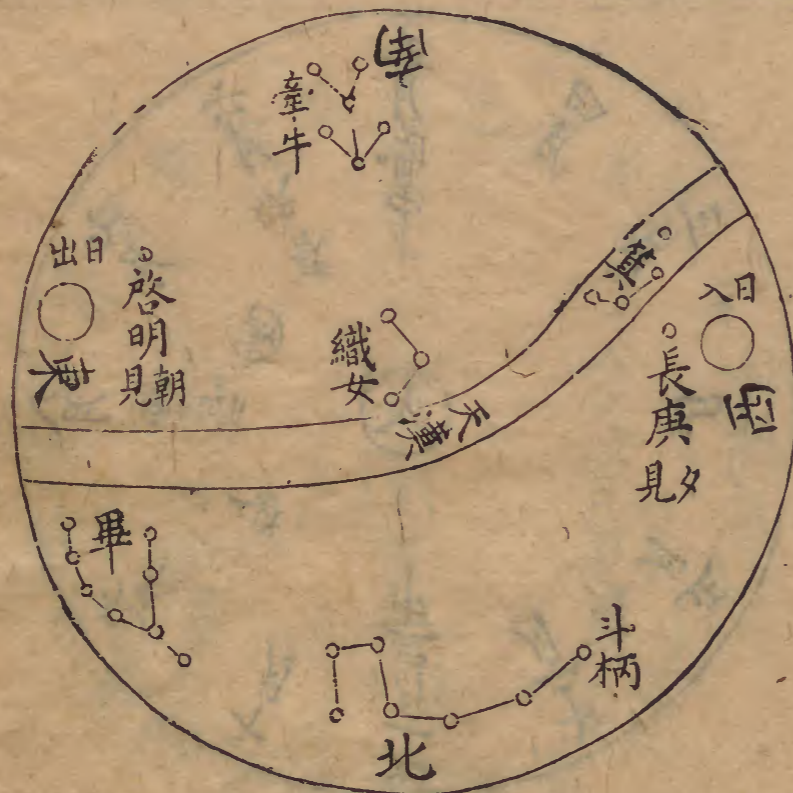 南
牽牛
日出
啓明朝見
東
織女
天漢
箕
日入
長庚夕見
西
畢
斗柄
北